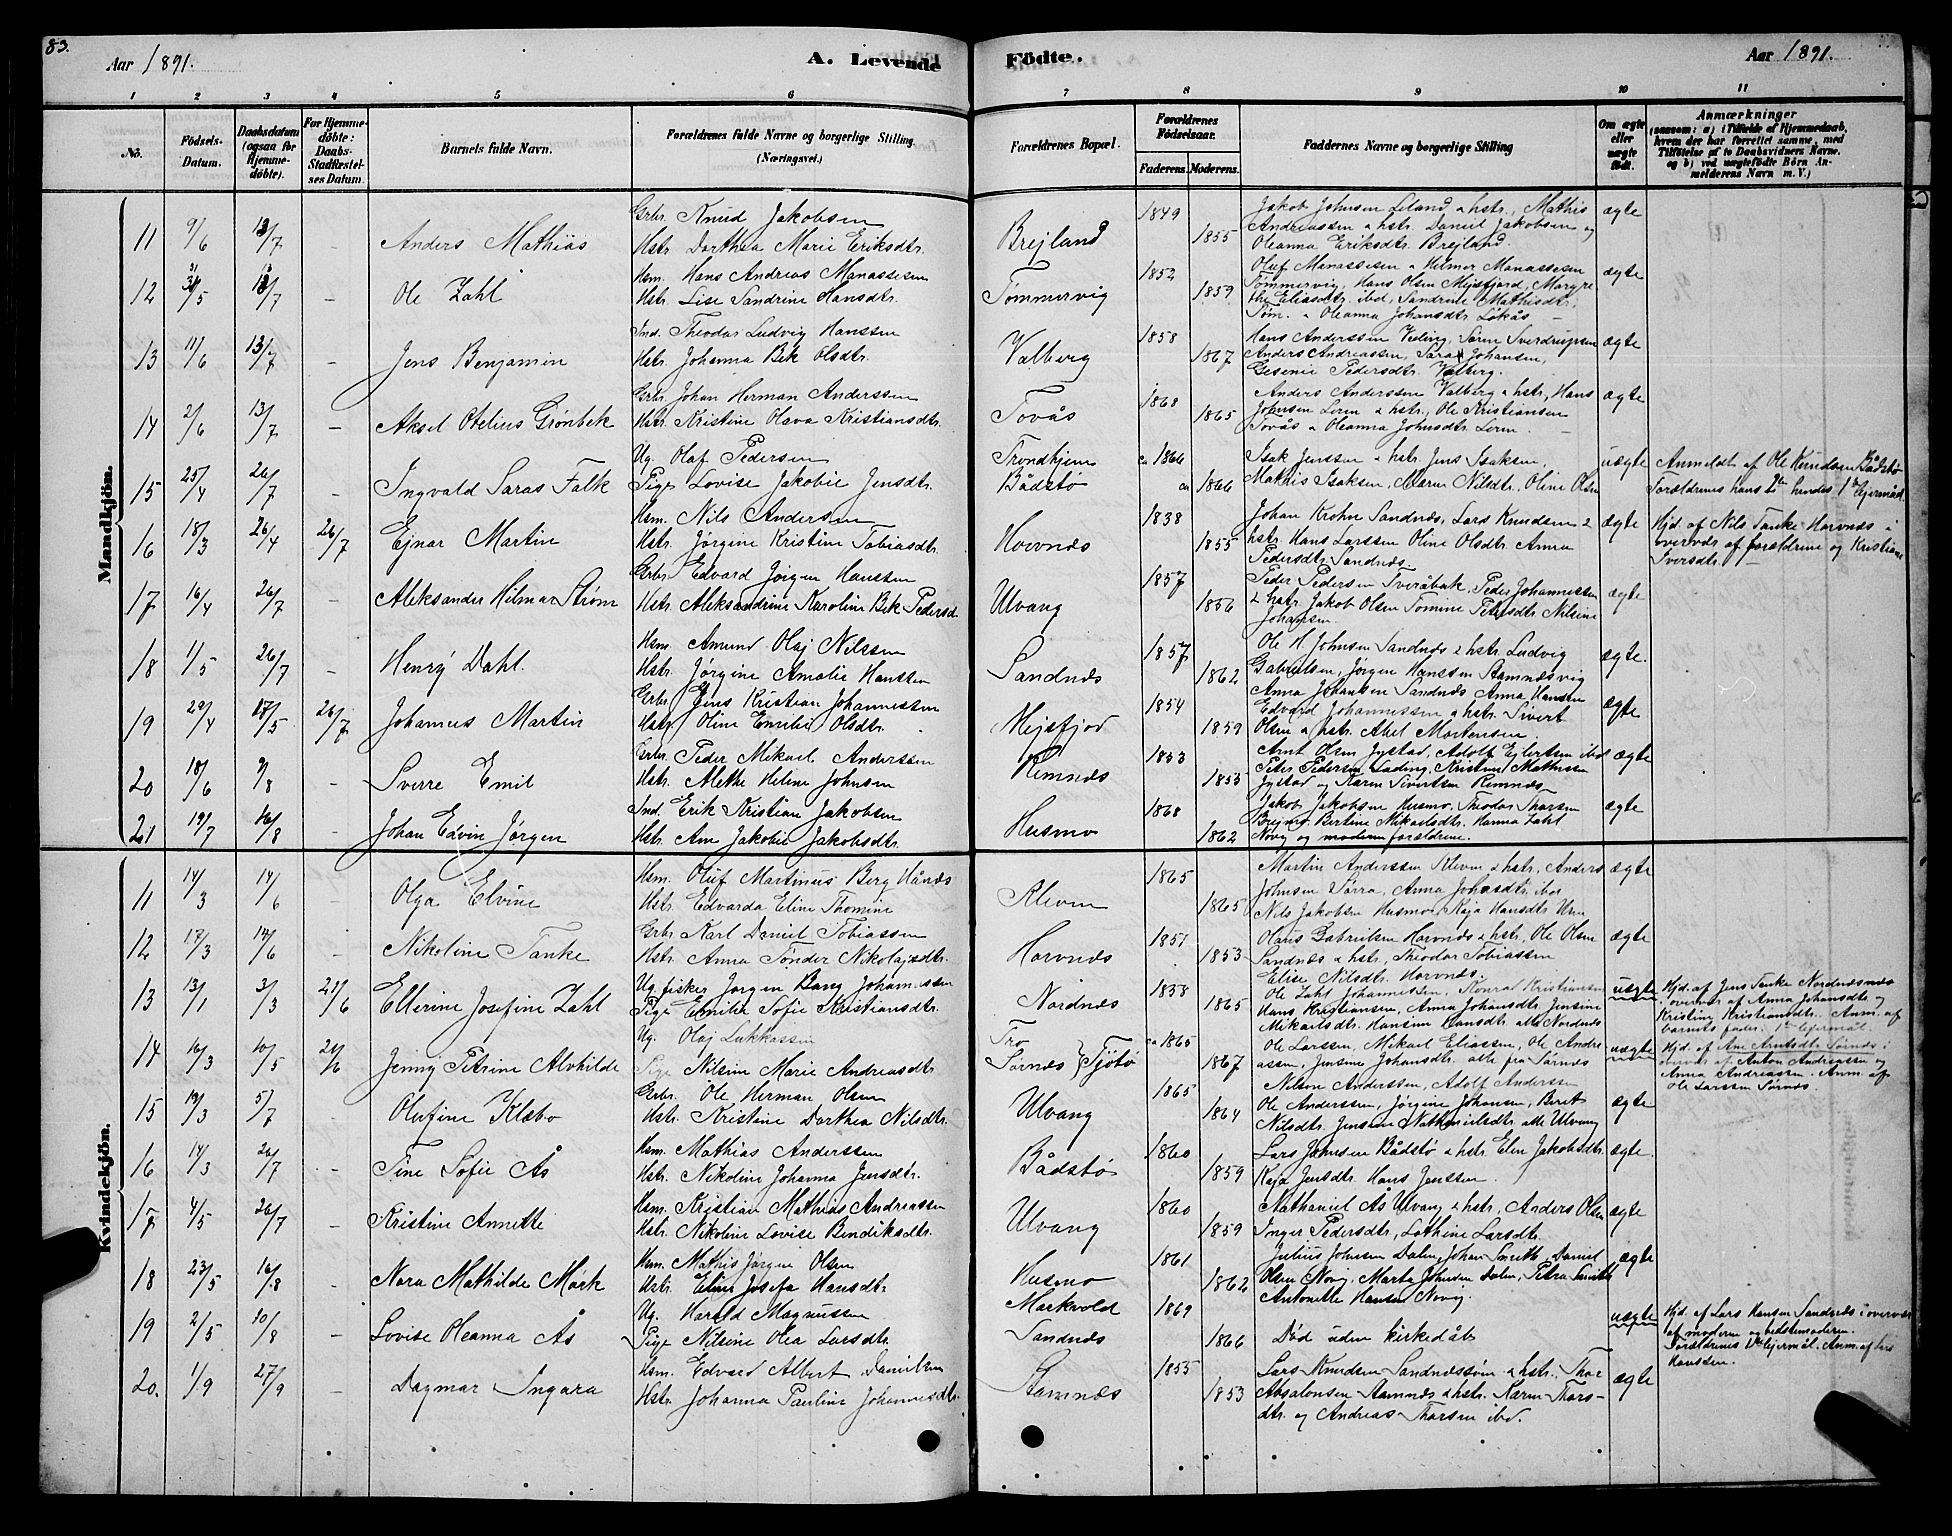 83.
Aar 1891.
A. Levende
Födte.
Aar 1891.
1 2 3 4 5 6 7 8 9 10 11
No.
Födsels-
Datum.
Daabsdatum
(ogsaa for
Hjemme-
döbte).
For Hjemme-
döbte:
Daabs-
Stadfæstel-
ses Datum.
Barnets fulde Navn.
Forældrenes fulde Navne og borgerlige Stilling.
(Næringsvei.)
Forældrenes Bopæl.
Forældrenes
Födselsaar.
Faderens.
Moderens.
Faddernes Navne og borgerlige Stilling
Om ægte
eller
uægte
födt.
Anmærkninger
(saasom: a) i Tilfælde af Hjemmedaab,
hvem der har forrettet samme, med
Tilföielse af to Daabsvidners Navne,
og b) ved uægtefödte Börn An-
melderens Navn m. V.)
Mandkjön.
11 9/6 13/7 Anders Mathias
Grbr. Knud Jakobsen
Hstr. Dorthea Marie Eriksdtr.
Brejland 1849 1855
Jakob Johnsen Leland & hstr., Mathis
Andreassen & hstr. Daniel Jakobsen og
Oleanna Eriksdtr. Brejland.
ægte
12 31/5 13/7 - Ole Zahl
Hsm. Hans Andreas Manassesen
Hstr. Lise Sandrine Hansdtr.
Tømmervig 1852 1859
Oluf Manassesen & Hilmer Manassesen
Tømmervig, Hans Olsen Mejsfjord, Margre
the Eliasdtr. ibd, Sandrine Mathisdtr.
Tøm. & Oleanna Johansdtr Løkås -
ægte
13 11/6 13/7 - Jens Benjamin
Ind. Theodor Ludvig Hanssen
Hstr. Johanna Bek Olsdtr.
Valberg 1858 1867
Hans Anderssen Veding, Søren Sverdrupsen
Anders Andreassen, Sara Johansen,
Gesenie Pedersdtr. Valberg.
ægte
14 2/6 13/7 - Aksel Otelius Grønbek
Grbr. Johan Herman Anderssen
Hstr. Kristine Olava Kristiansdtr.
Tovås 1868 1865
Anders Anderssen Valberg & hstr., Hans
Johnsen Leren & hstr., Ole Kristiansen
Tovås & Oleanna Johnsdtr. Leren. -
ægte
15 25/4 26/7 - Ingvald Saras Falk
Ug. Olaf Pedersen
Pige Lovise Jakobie Jensdtr.
Trondhjem
Bådstø ca 1866 ca 1866
Isak Jenssen & hstr Jens Isaksen,
Mathis Isaksen, Maren Nilsdtr., Oline Olsen
uægte
Anmeldt af Ole Knudsen Bådstø
Forældrenes hans 2det hendes 1ste lejermål
16 18/3 26/4 26/7 Ejnar Martin
Hsm. Nils Andersen
Hstr. Jørgine Kristine Tobiasdtr.
Hovnæs 1838 1855
Johan Krohn Sandnæs, Lars Knudsen &
hstr Hans Larssen Oline Olsdtr. Anna
Pedersdtr. Sandnæs.
ægte
Hjd. af Nils Tanke Horvnæs i
overvær af forældrene og Kristiane
Iversdtr. -
17 16/4 26/7 - Aleksander Hilmar Strøm
Grbr. Edvard Jørgen Hanssen
Hstr. Aleksandrine Karoline Bek Pedersd.
Ulvang 1857 1856
Peder Pedersen Sveråbak, Peder Johannessen
& hstr. Jakob Olsen Tomine Petersdtr. Nilsine
Johansen.
ægte
18 1/5 26/7 - Henry Dahl.
Hsm. Amund Olaj Nilssen
Hstr. Jørgine Amalie Hanssen
Sandnæs 1857 1862
Ole H. Johnsen Sandnæs & hstr. Ludvig
Gabrielsen, Jørgen Hanssen Stamnesvig
Anna Johansen Sandnæs Anna Hansen
ægte.
19 29/4 17/5 26/7 Johannes Martin
Grbr. Jens Kristian Johannessen
Hstr. Oline Emilie Olsdtr.
Mejsfjord 1854 1859
Edvard Johannessen & hstr. Sivert
Olsen & hstr. Abel Mortensen.
ægte
20 18/6 9/8 - Sverre Emil
Grbr. Peder Mikael Anderssen
Hstr. Alethe Helene Johnsen
Remnæs 1853 1853
Arnt Olsen Jystad, Adolf Ejlertsen ibd
Peter Pedersen Lading, Kristine Mathissen
Jystad og Karen Sivertsen Remnæs.
ægte
21 19/7 16/8 - Johan Edvin Jørgen
Ind. Erik Kristian Jakobsen
Hstr. Ane Jakobie Jakobsdtr.
Husmo 1868 1862
Jakob Jakobsen Husmo, Theodor Thorsen
Brejmo, Bertine Mikaelsdtr. Hanna Zahl
Novig og moderen forældrene.
ægte
Kvindekjön.
11 14/3 14/6 - Olga Elvine
Hsm. Oluf Martinus Berg Hånæs
Hstr. Edvarda Eline Thomine
Kleven 1865 1865
Martin Anderssen Kleven & hstr., Anders
Johnsen Sørra, Anna Johnsdtr. ibd
Nils Jakobsen Husmo, Kaja Hansdtr. Uren
ægte
12 17/3 14/6 - Nikoline Tanke
Grbr. Karl Daniel Tobiassen
Hstr. Anna Tønder Nikolajsdtr.
Horvnæs 1851 1853
Hans Gabrielsen Horvnæs & hstr., Ole Olsen
Sandnæs & hstr., Theodor Tobiassen
Elise Nilsdtr. Horvnæs.
ægte
13 13/1 3/3 21/6 Ellerine Josefine Zahl
Ug. fisker Jørgen Bang Johannessen
Pige Emilie Sofie Kristiansdtr.
Nordnæs 1858 1865
Ole Zahl Johannessen, Konrad Kristiansen
Hans Kristiansen, Anna Johansdtr. Jensine
Mikaelsdtr. Hansine Hansdtr. alle Nordnæs
uægte
Hjd. af Jens Tanke Nordnæsnæs
i overvær af Anna Johansdtr og
Kristine Kristiansdtr. Anm. af
barnets fader. 1ste lejermål.
14 16/3 10/5 21/6 Jenny Petrine Alvhilde
Ug. Olaj Lukkassen
Pige Nilsine Marie Andreasdtr.
Tro
Sørnæs } Tjøtø ca 1865 1867
Ole Larssen, Mikael Eliassen, Ole Andre
assen, Jensine Johansdtr. alle fra Sørnæs
uægte
Hjd. af Ane Arntsdtr Sørnæs i
overvær af Anton Andreassen og
Anna Andreassen. Anm. af
Ole Larssen Sørnæs.
15 19/3 5/7 Olufine Klæbo
Grbr. Ole Herman Olsen
Hstr. Kristine Dorthea Nilsdtr.
Ulvang 1865 1864
Nelson Anderssen, Adolf Anderssen
Ole Anderssen, Jørgine Johansen, Beret
Nilsdtr. Jensine Nathanielsdtr alle Ulvang
ægte
16 14/3 26/7 - Tine Sofie Ås
Hsm. Mathias Anderssen
Hstr. Nikoline Johanna Jensdtr.
Bådstø 1860 1859
Lars Johnsen Bådstø & hstr. Elen Jakobsdtr.
Kaja Jensdtr. Hans Jenssen.
ægte.
17 4/5 26/7 - Kristine Annette
Hsm. Kristian Mathias Andreassen
Hstr. Nikoline Lovise Bendiksdtr.
Ulvang 1860 1859
Nathaniel Ås Ulvang & hstr., Anders Olsen
Inger Pedersdtr., Lothine Larsdtr.
ægte
18 23/5 16/8 - Nora Mathilde Mørk
Hsm. Mathis Jørgen Olsen
Hstr. Eline Josefa Hansdtr.
Husmo 1861 1862
Julius Johnsen Dalen, Johan Smith, Daniel
Olsen Novig, Marta Johnsen Dalen, Petra Smith
Antonette Hansen Novig.
ægte
19 2/5 30/8 - Lovise Oleanna Ås
Ug. Harald Magnussen
Pige Nilsine Olea Larsdtr.
Markvold
Sandnæs 1869 1866
Død uden kirkedåb
uægte
Hjd. af Lars Hansen Sandnæs i overvær
af moderen og bedstemoderen.
Forældrenes 1ste lejermål. Anm. af Lars
Hanssen.
20. 1/9 27/9 - Dagmar Ingara
Hsm. Edvard Albert Danielsen
Hstr. Johanna Pauline Johannesdtr.
Stamnæs 1855 1853
Lars Knudsen Sandnæssøen & hstr., Thor
Absalonsen Stamnæs & hstr. Karen Thors-
dtr. og Andreas Thorsen ibd.
ægte